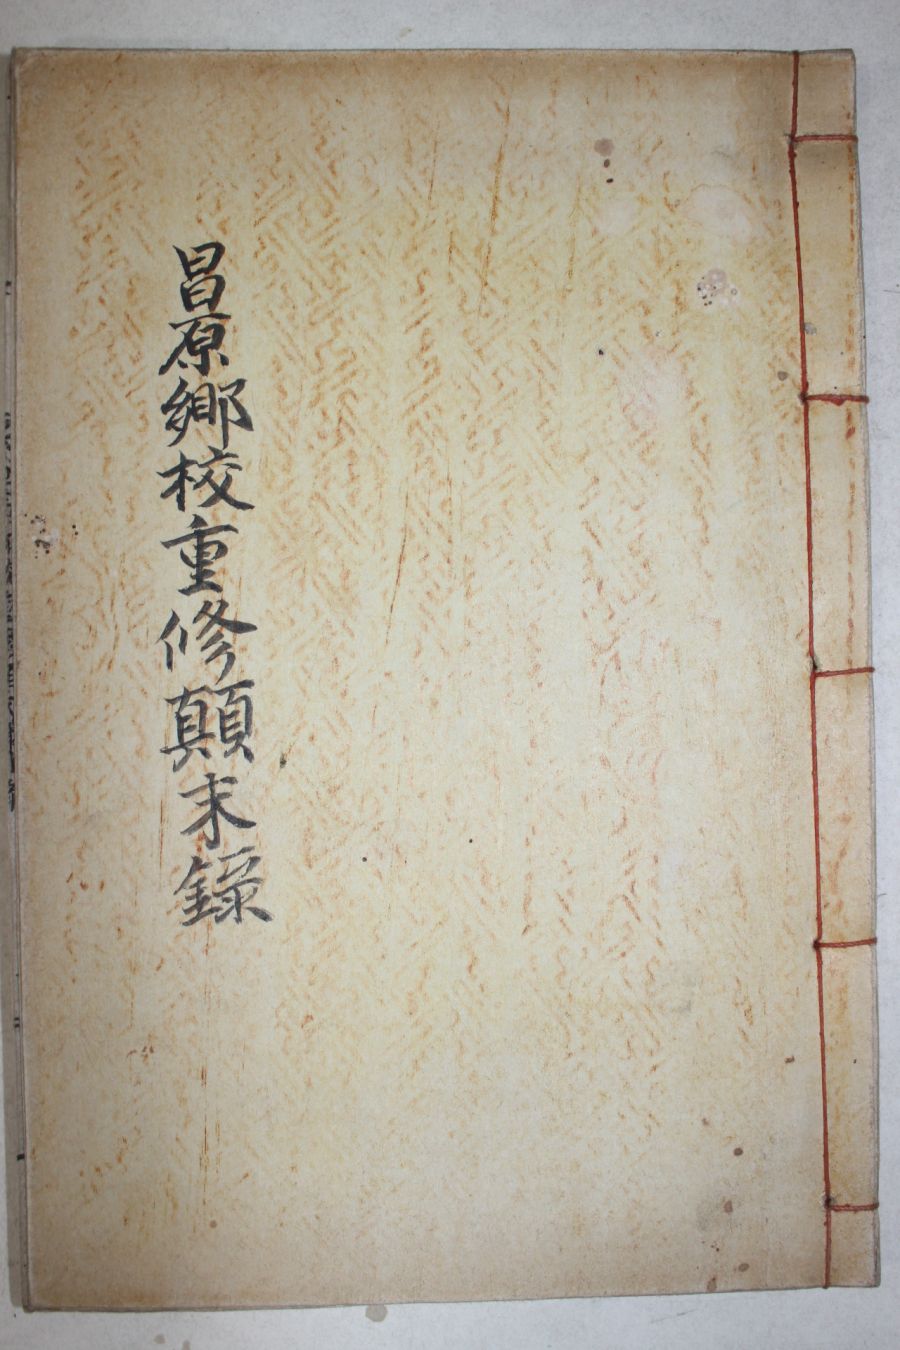 昌原鄕校重修顛末錄